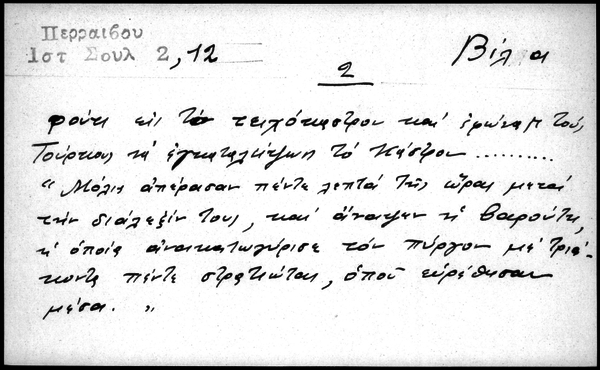 Περραιβου
Ιστ Σουλ 2, 12
Βίλ α
2
φούν εις το τειχόκαστρον και εφώναζ τους
Τούρκους να εγκαταλείψουν το Κάστρον ..........
"Μόλις απέρασαν πέντε λεπτά της ώρας μετά
την διάλεξίν τους, και άναψεν η βαρούτη,
η οποία ανεκατωγύρισε τον πύργον με τριά-
κοντα πέντε στρατιώτας, οπού ευρέθησαν
μέσα. "